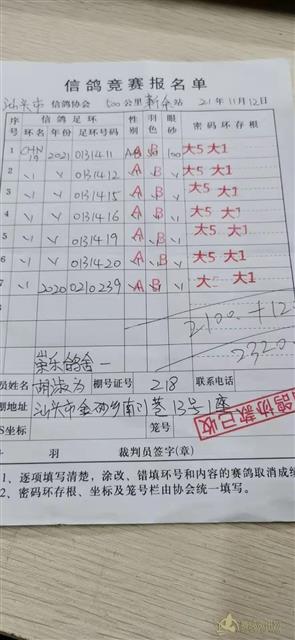 信鸽竞赛报名单
汕头市 信鸽协会 500公里 新乐 站 21年11月12日
序号 信鸽足环 性别 羽色 眼砂 密码环存根
环名 年份 足环号码
1 CHN 19 2021 0131411 A B 100 大5 大1
2 0131412 A B 大5 大1
3 0131415 A B 大5 大1
4 0131416 A B 大5 大1
5 0131419 A B 大5 大1
6 0131420 A B 大5 大1
7 2020 0210239 A B 大5 大1
2100
2320
乐鸽舍
员姓名 胡 为 棚号证号 218 联系电话
棚地址 汕头市金 南 巷13号1座
S坐标 笼号
鸽协款已收
计 羽 裁判员签字(章)
1、逐项填写清楚,涂改、错填环号和内容的赛鸽取消成绩
2、密码环存根、坐标及笼号栏由协会统一填写。